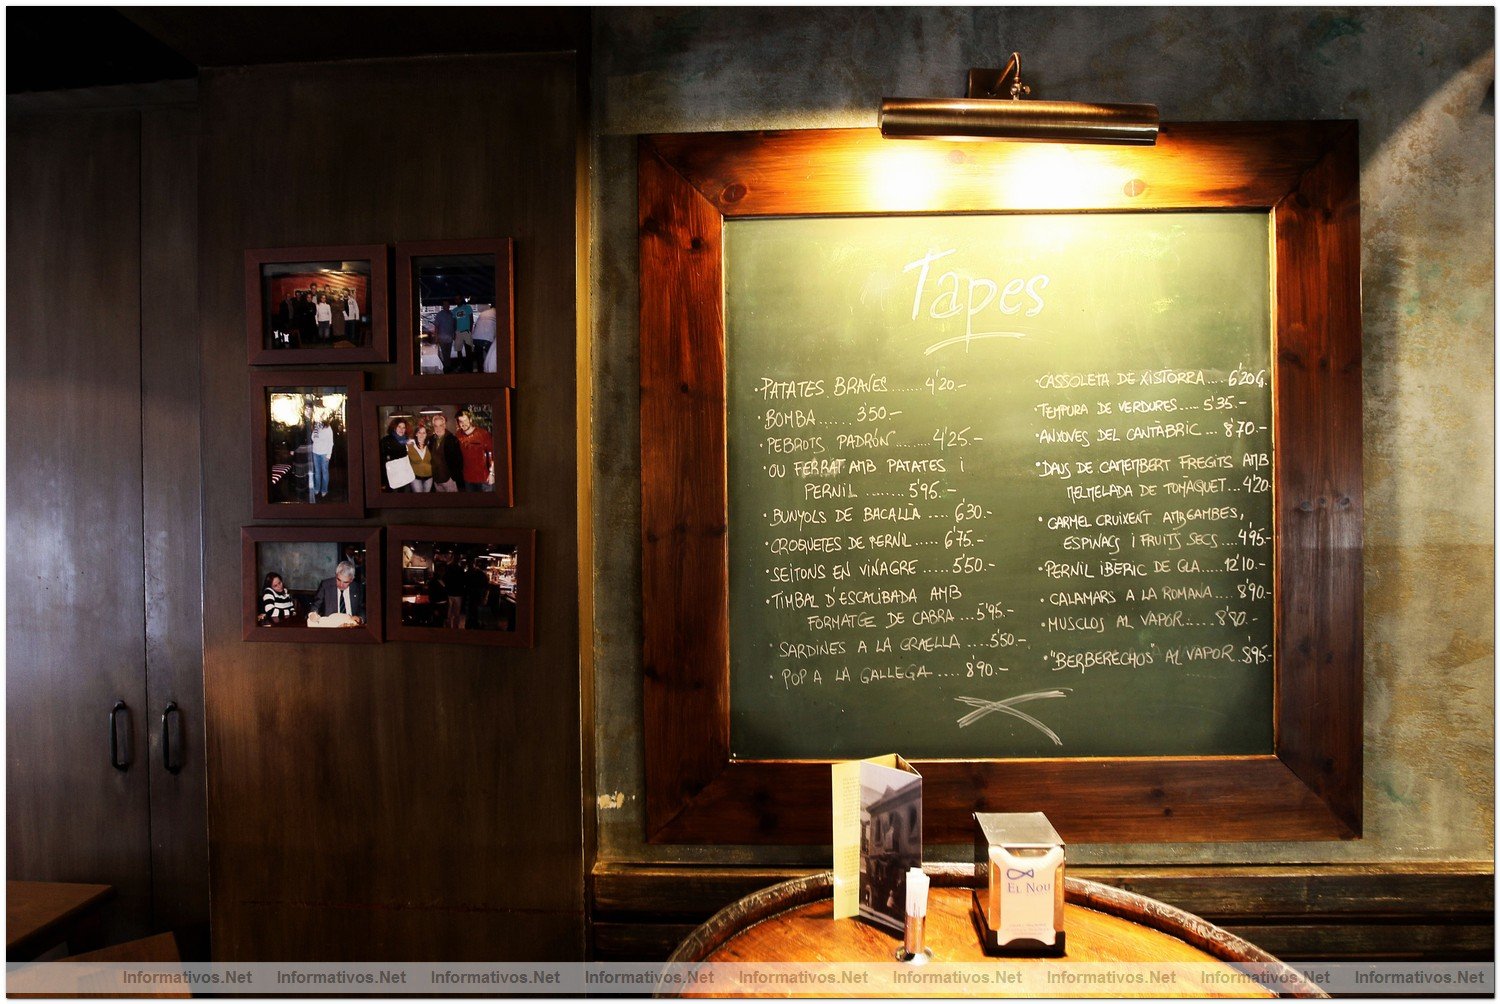 Tapes
·PATATES BRAVES.......4'20.-
·BOMBA......3'50-
·PEBROTS PADRÓN.......4'25.-
·OU FERRAT AMB PATATES i
PERNIL ........5'95.-
·BUNYOLS DE BACALLÀ ....6'30.-
·CROQUETES DE PERNIL.....6'75.-
·SEITONS EN VINAGRE .....5'50.-
·TIMBAL D'ESCALIBADA AMB
FORMATGE DE CABRA...5'95.-
·SARDINES A LA GRAELLA ....5'50-
·POP A LA GALLEGA ....8'90.-
·CASSOLETA DE XISTORRA....6'20
·TEMPURA DE VERDURES.....5'35.-
·ANXOVES DEL CANTÀBRIC ...8'70.-
·DAUS DE CAMEMBERT FREGITS AMB
MELMELADA DE TOMAQUET...4'20
·CARMEL CRUIXENT AMB GAMBES,
ESPINACS i FRUITS SECS....4'95-
·PERNIL IBÈRIC DE GLA.....12'10.-
·CALAMARS A LA ROMANA....8'90.-
·MUSCLOS AL VAPOR......8'80.-
·"BERBERECHOS" AL VAPOR..8'95.-
EL NOU
Informativos.Net Informativos.Net Informativos.Net Informativos.Net Informativos.Net Informativos.Net Informativos.Net Informativos.Net Informativos.Net